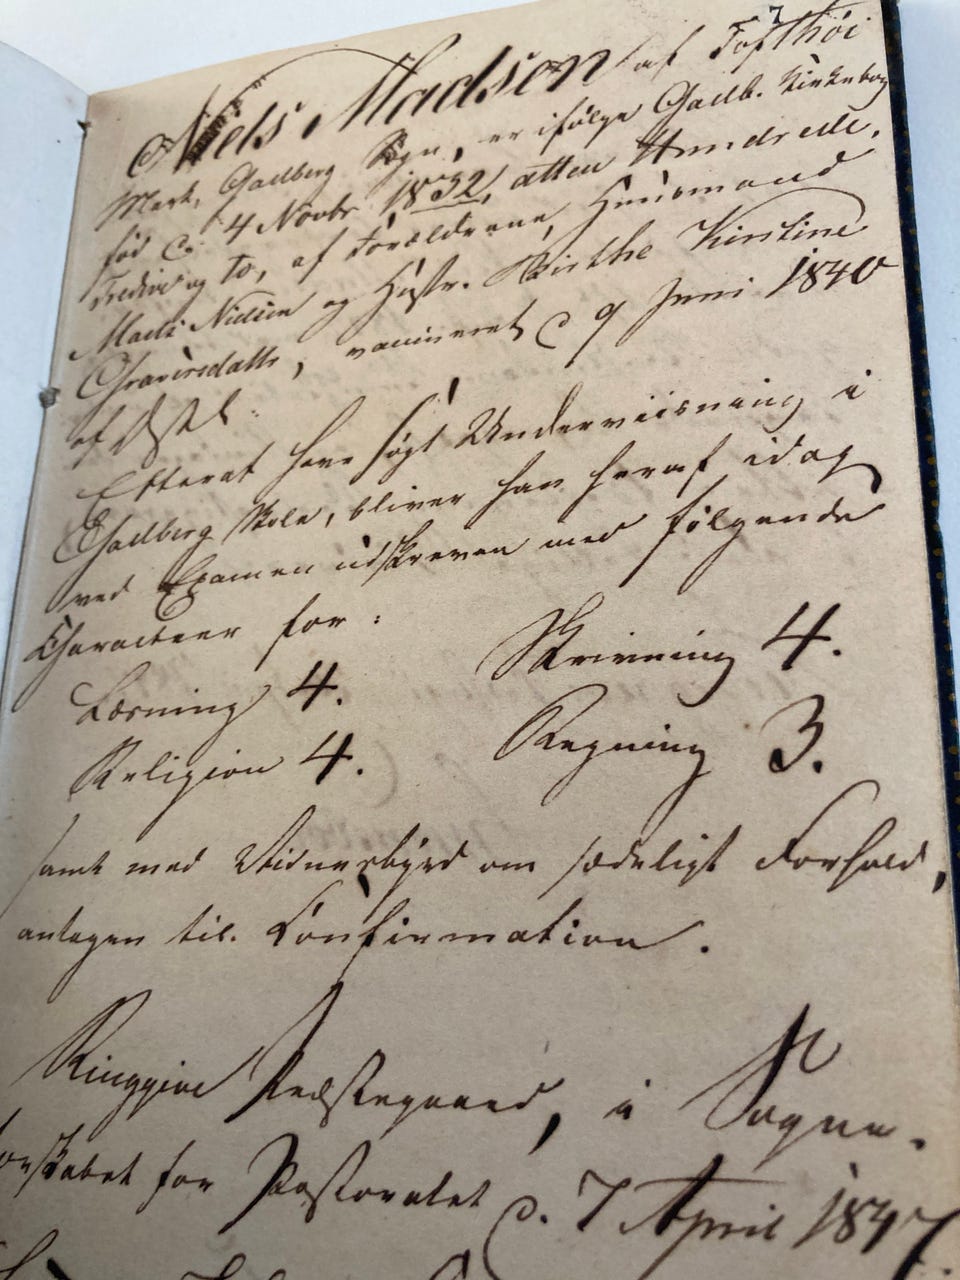 7
Niels Madsen af Tofthøi
Mark, Gadberg Sogn, er ifølge Gadb. Kirkebog
fød d. 4 Novbr 1832, atten Hundrede,
Tredive og to, af Forældrene, Huusmand
Mads Nielsen og Hustr. Birthe Kirstine
Graversdattr, vaccineret d 9 Juni 1840
af
Efterat have søgt Underviisning i
Gadberg Skole, bliver han heraf idag
ved Examen udskreven med følgende
Characteer for:
Læsning 4. Skrivning 4.
Religion 4. Regning 3.
samt med Vidnesbyrd om sædeligt Forhold,
antagen til Confirmation.
Ringgive Præstegaard, i Sogne-
orskabet for Pastoratet d. 7 April 1847